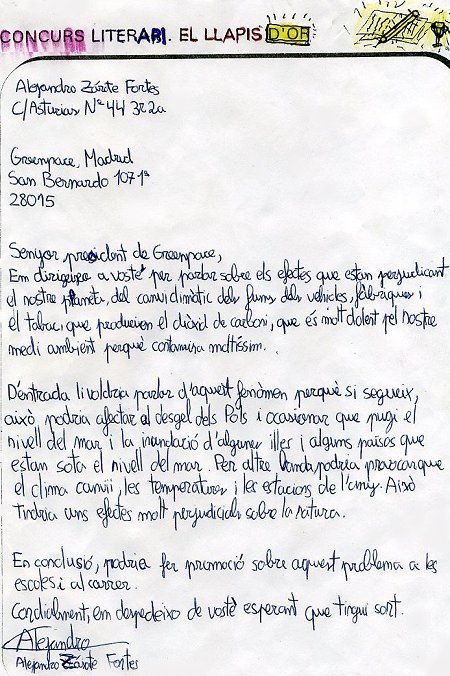 CONCURS LITERARI. EL LLAPIS D'OR
Alejandro Zárate Fortes
C/Asturias Nº 44 3r 2a
Greenpace, Madrid
San Bernardo 107 1ª
28015
Senyor president de Greenpace,
Em dirigeixo a vosté per parlar sobre els efectes que estan perjudicant
el nostre planeta, del canvi climàtic dels fums dels vehicles, fàbriques i
el tabac, que produeixen el diòxid de carboni, que és molt dolent pel nostre
medi ambient perquè contamina moltíssim.
D'entrada li voldria parlar d'aquest fenòmen perquè si segueix,
això podria afectar al desgel dels Pols i ocasionar que pugi el
nivell del mar i la inundació d'algunes illes i alguns països que
estan sota el nivell del mar. Per altre banda podria provocar que
el clima canvii, les temperatures i les estacions de l'any. Això
tindria uns efectes molt perjudicials sobre la natura.
En conclusió, podria fer promoció sobre aquest problema a les
escoles i al carrer.
Cordialment, em despedeixo de vostè esperant que tingui sort.
Alejandro
Alejandro Zárate Fortes